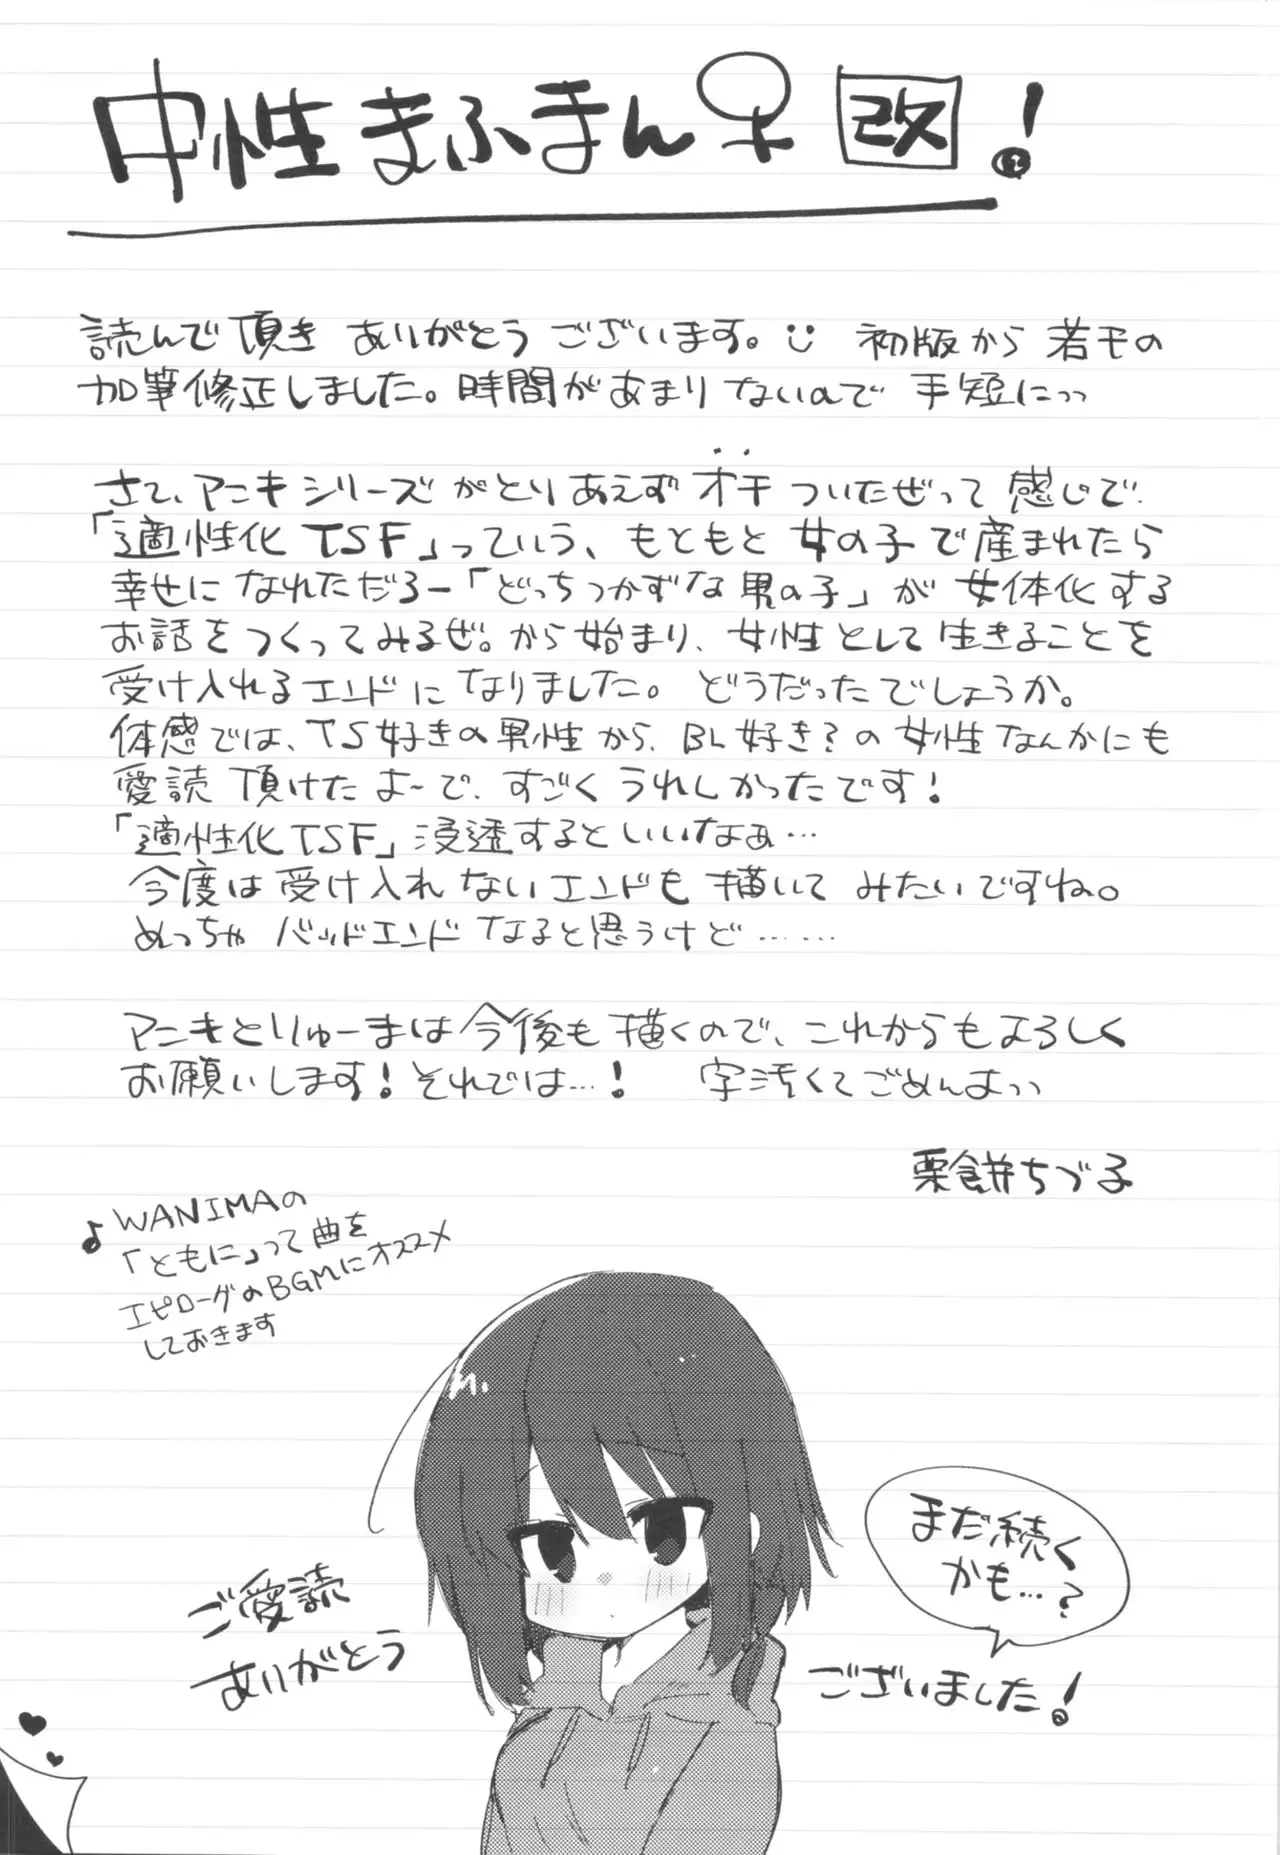 中性まふまん♀改!
読んで頂きありがとうございます。 初版から若干の
加筆修正しました。時間があまりないので手短にっっ
さて、アニキシリーズがとりあえずオチついたぜって感じで、
「適性化TSF」っていう、もともと女の子で産まれたら
幸せになれただろー「どっちつかずな男の子」が女体化する
お話をつくってみるぜ。から始まり、女性として生きることを
受け入れるエンドになりました。どうだったでしょうか。
体感では、TS好きの男性から、BL好き?の女性なんかにも
愛読頂けたよーで、すごくうれしかったです!
「適性化TSF」浸透するといいなぁ…
今度は受け入れないエンドも描いてみたいですね。
めっちゃバッドエンドなると思うけど……
アニキとりゅーまは今後も描くので、これからもよろしく
お願いします!それでは…! 字汚くてごめんよっっ
栗餅ちづ子
♪WANIMAの
「ともに」って曲を
エピローグのBGMにオススメ
しておきます
まだ続く
かも…?
ご愛読
ありがとう
ございました!